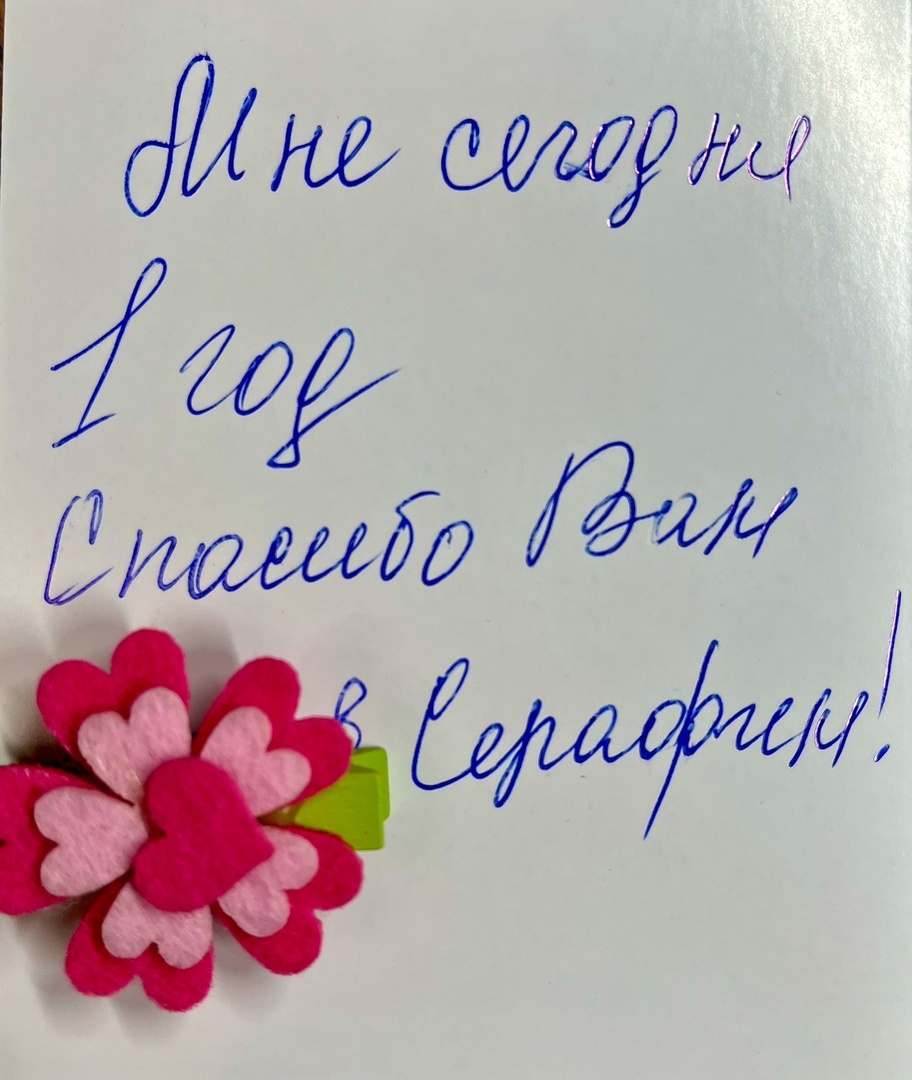 Мне сегодня
1 год
Спасибо Вам
Серафим!